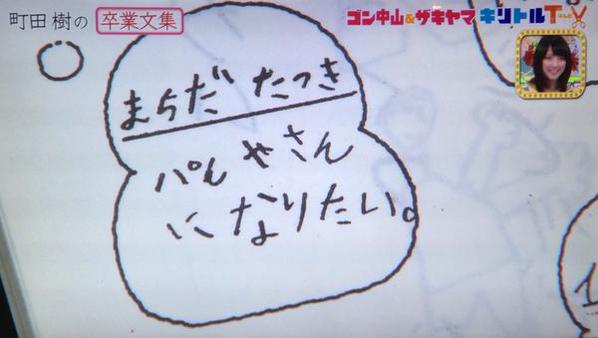 町田 樹の 卒業文集
ゴン中山&ザキヤマ キリトルTV
まちだ たつき
パんやさん
になりたい。